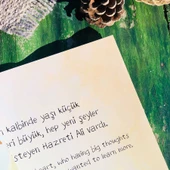 kalbinde yaşı küçük
büyük, hep yeni şeyler
isteyen Hazreti Ali vardı.
who having big thoughts
wanted to learn more.